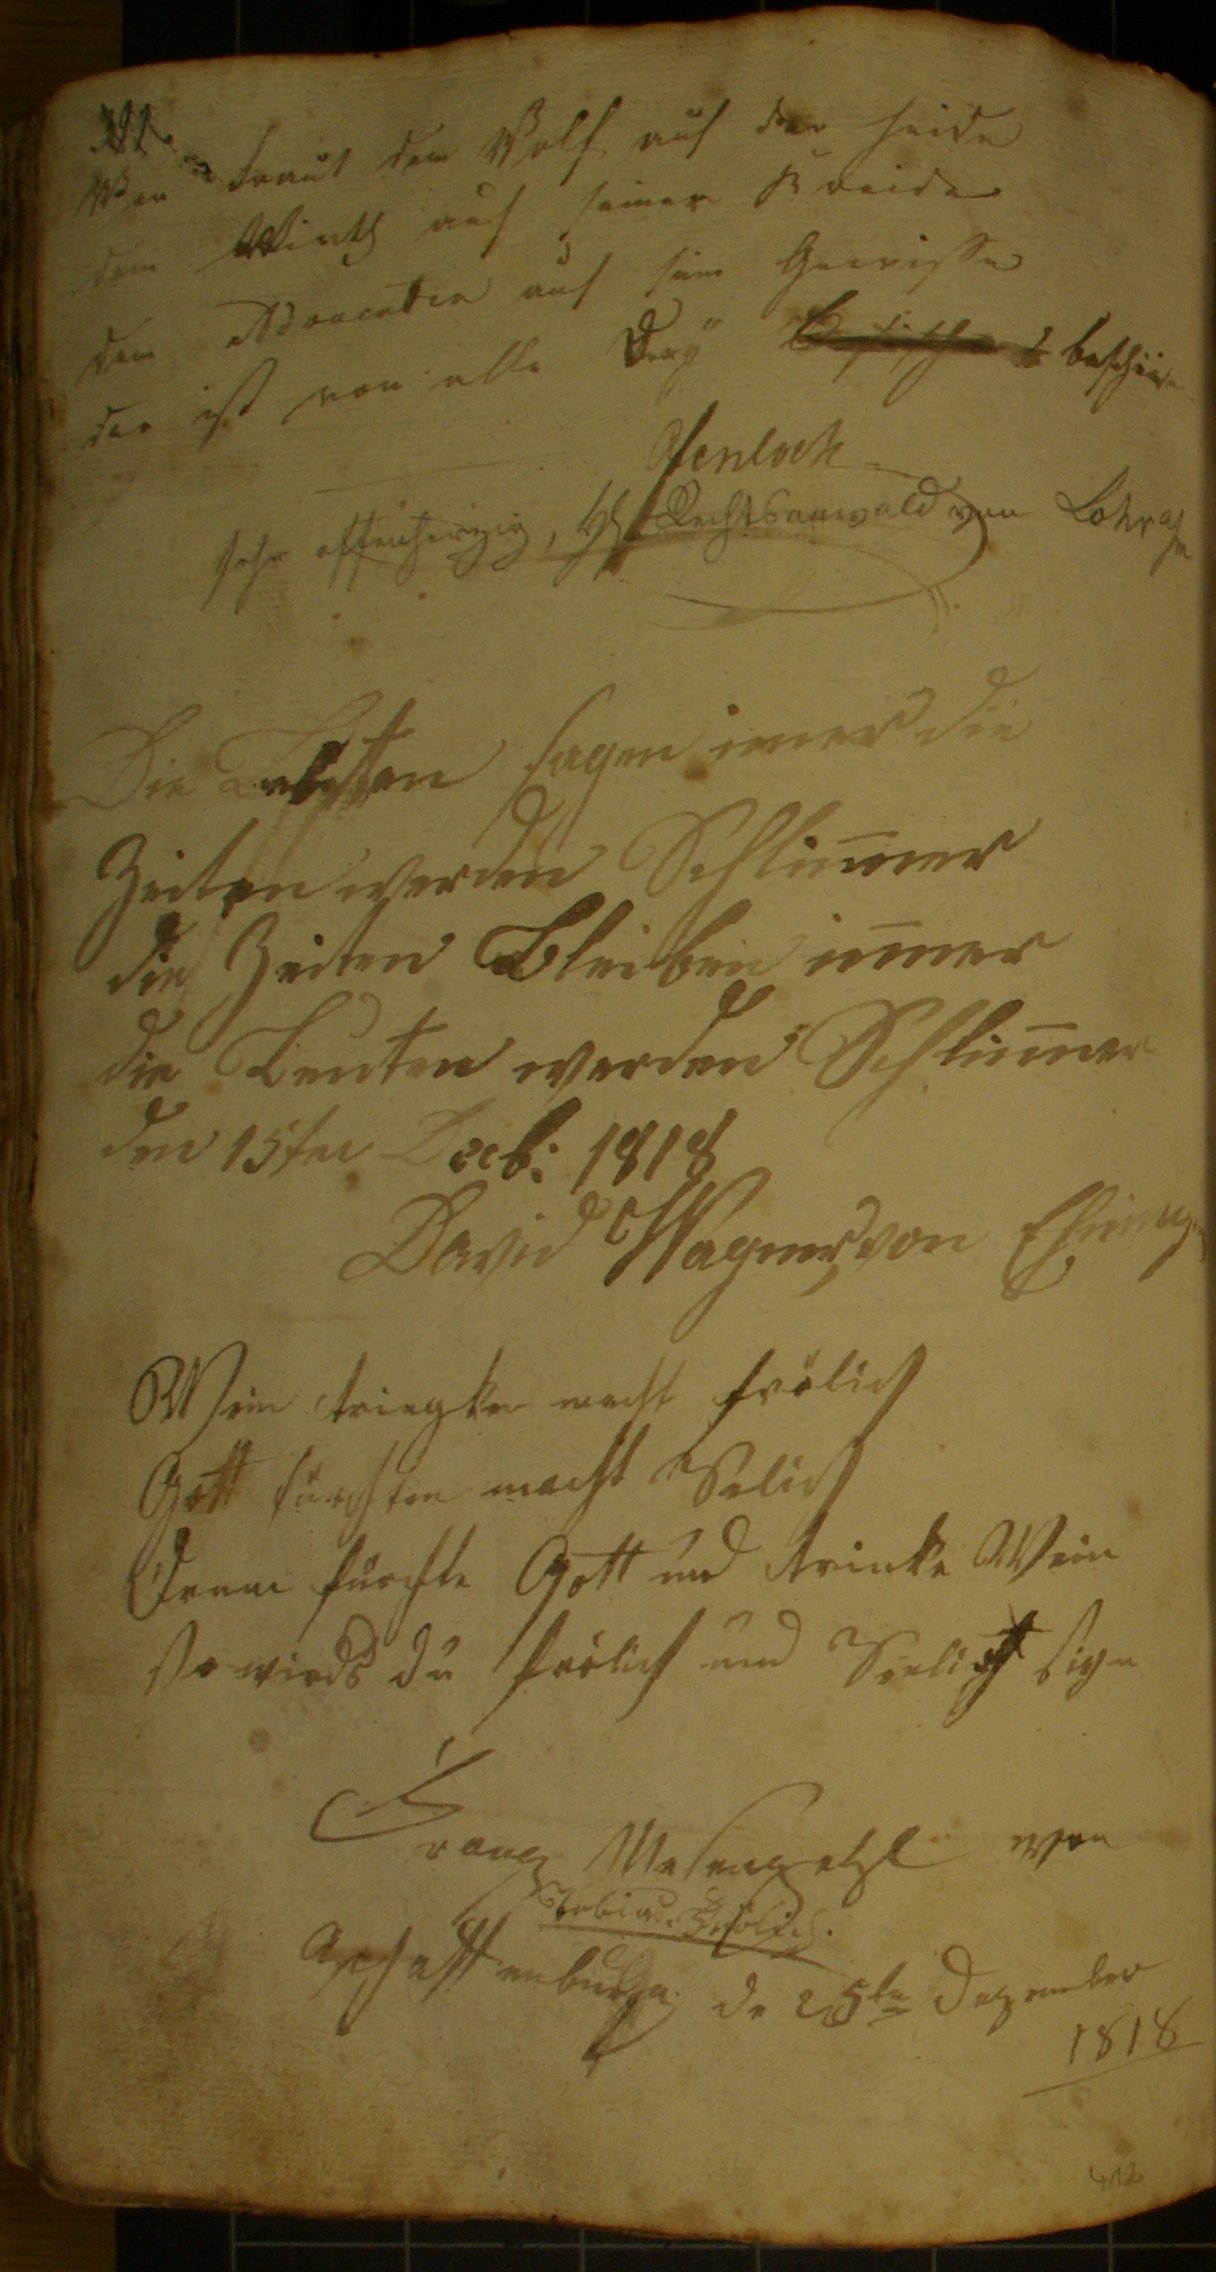 Wer traut dem Wolf auf der Heide
dem Wirth auf seiner Kreide
dem Advocaten auf sein Gewisse
der ist von alle Drey beschiße
Ofenloch
sehr offenherzig, Rechtsanwald von Lohr a/m
Die Leutten sagen imer die
Zeiten werden Schlim̄er
die Zeiten Bleiben im̄er
die Leuten werden Schlim̄er
den 15ten Decb: 1818
David Wagner, von
Wein tringken macht frölich
Gott fürchten macht Selich
Drum fürchte Gott und trinke Wein
So wirds du frölich und Seelich seyn
Franz von
Tobias Frölich.
Aschaffenburg de 25ten Dezember
1818
412